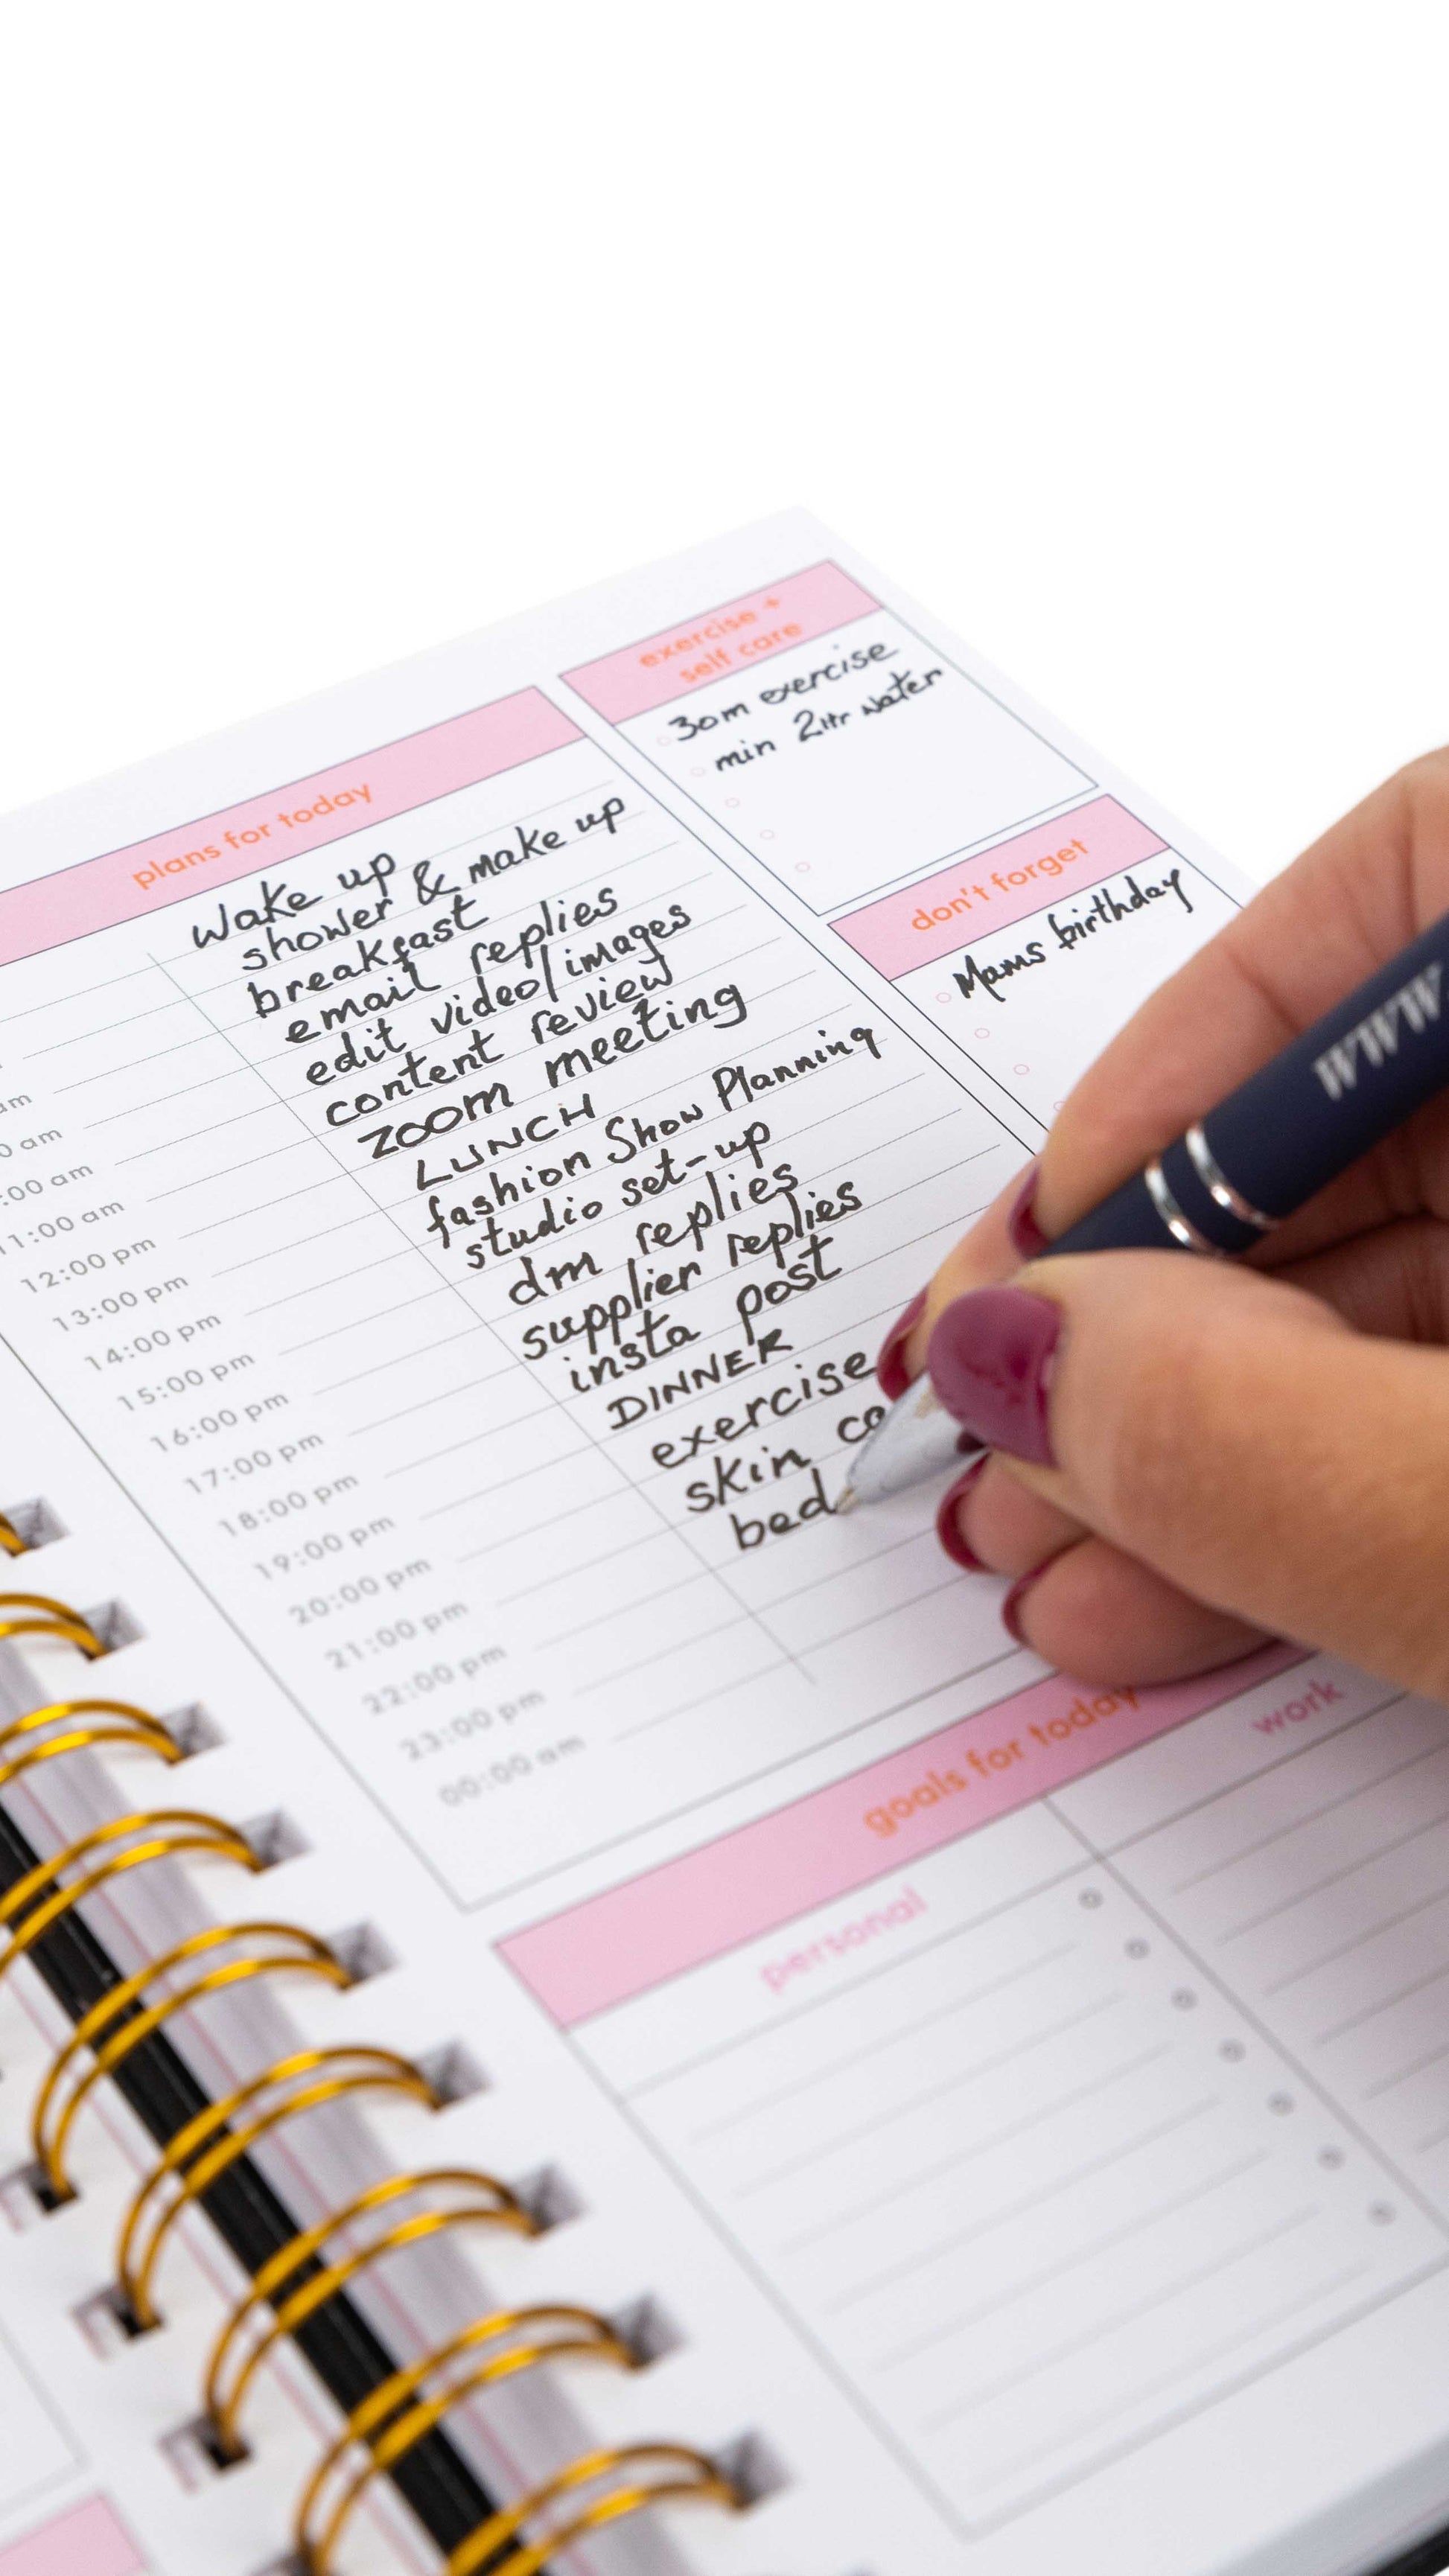 plans for today
wake up
shower & make up
breakfast
email replies
edit video/images
content review
ZOOM meeting
LUNCH
fashion Show Planning
studio set-up
dm replies
supplier replies
insta post
DINNER
exercise
skin
bed
am
0 am
:00 am
11:00 am
12:00 pm
13:00 pm
14:00 pm
15:00 pm
16:00 pm
17:00 pm
18:00 pm
19:00 pm
20:00 pm
21:00 pm
22:00 pm
23:00 pm
00:00 am
exercise +
self care
30m exercise
min 2ltr water
don't forget
Mams birthday
WWW
goals for today
personal
work